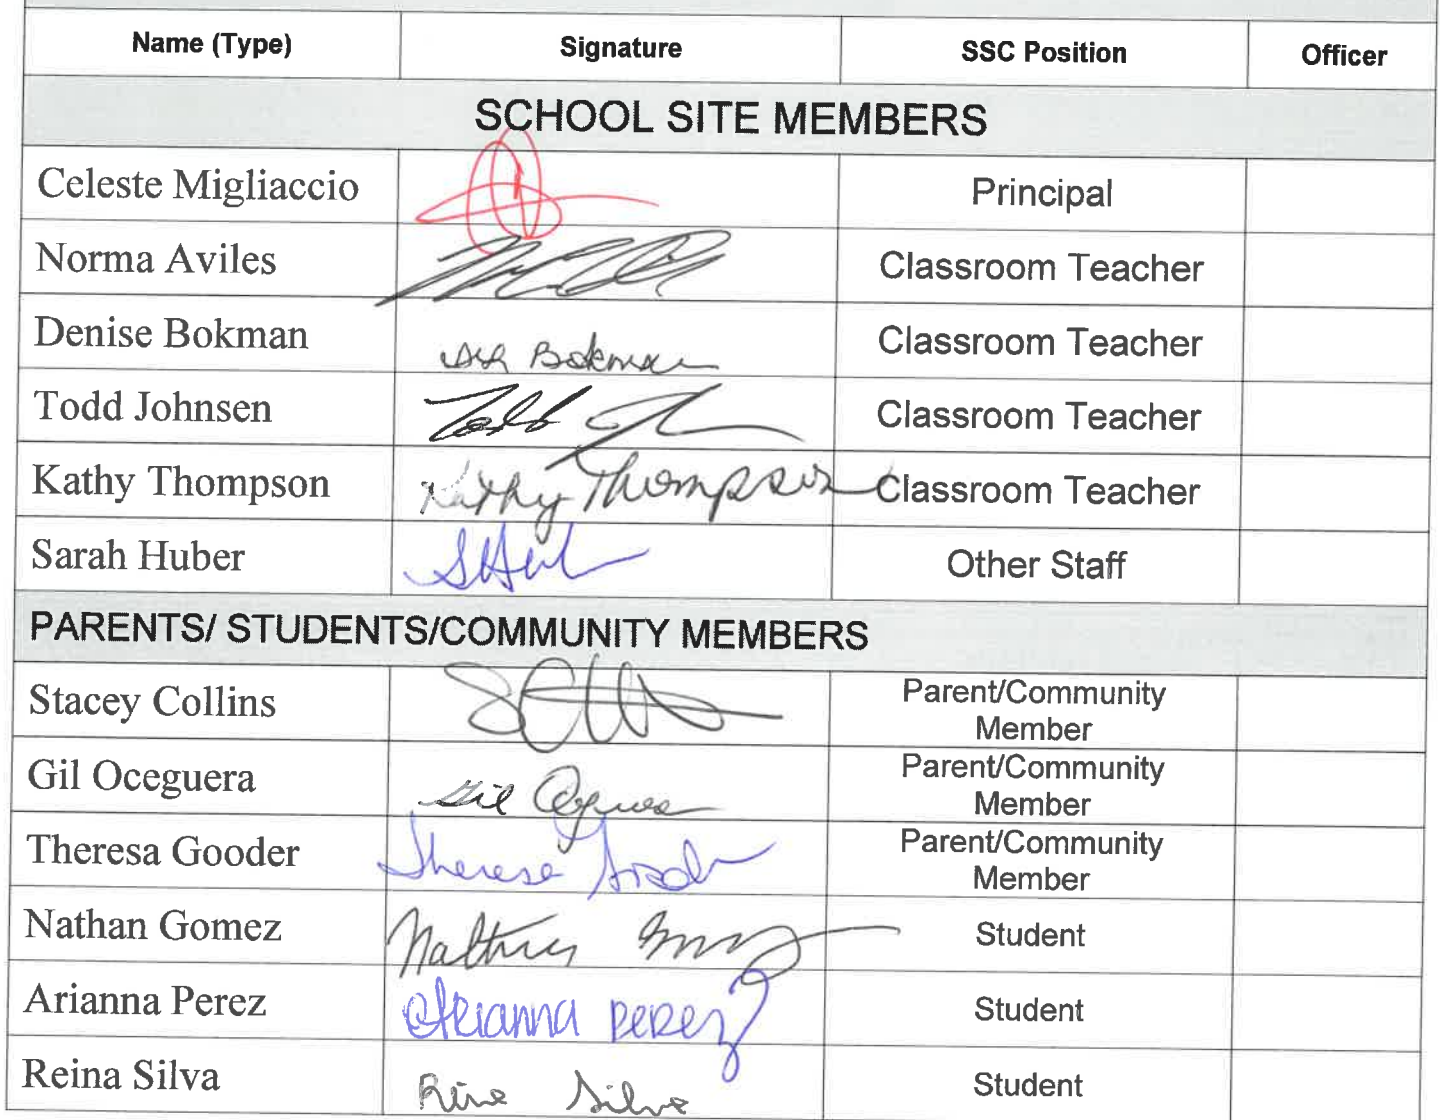 Name (Type) Signature SSC Position Officer
SCHOOL SITE MEMBERS
Celeste Migliaccio Principal
Norma Aviles Classroom Teacher
Denise Bokman Bokman Classroom Teacher
Todd Johnsen Todd Classroom Teacher
Kathy Thompson Kathy Thompson Classroom Teacher
Sarah Huber Other Staff
PARENTS/ STUDENTS/COMMUNITY MEMBERS
Stacey Collins Parent/Community
Member
Gil Oceguera Gil Parent/Community
Member
Theresa Gooder Parent/Community
Member
Nathan Gomez Student
Arianna Perez Arianna Perez Student
Reina Silva Silva Student